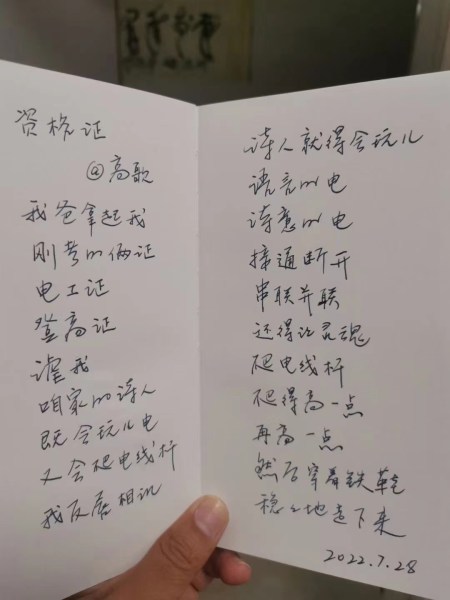 资格证
@高歌
我爸拿起我
刚考的俩证
电工证
登高证
谑我
咱家的诗人
既会玩儿电
又会爬电线杆
我反唇相讥
诗人就得会玩儿
语言的电
诗意的电
接通断开
串联并联
还得让灵魂
爬电线杆
爬得高一点
再高一点
然后穿着铁鞋
稳々地走下来
2022.7.28